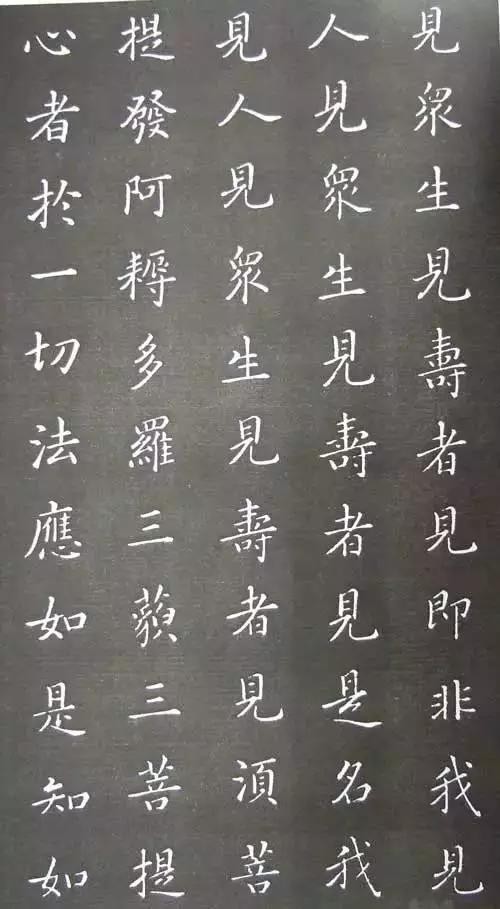 見衆生見壽者見即非我見
人見衆生見壽者見是名我
見人見衆生見壽者見須菩
提發阿耨多羅三藐三菩提
心者於一切法應如是知如